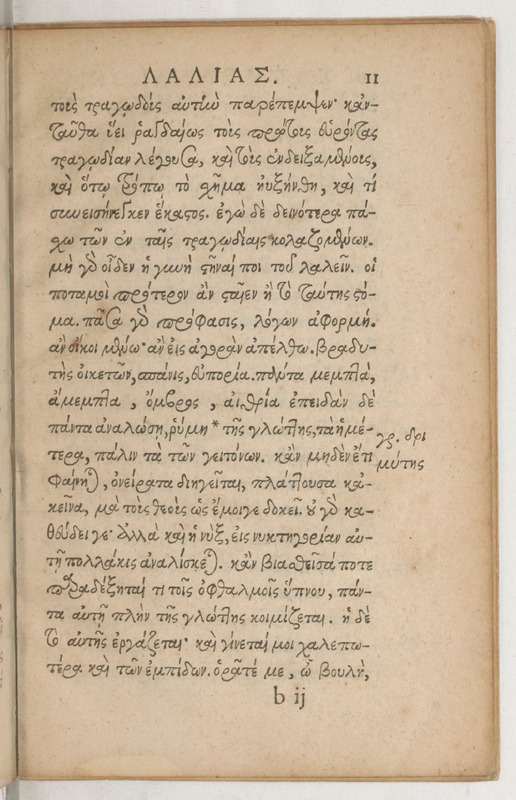 ΛΑΛΙΑΣ. 11
τοὺς τραγῳδοὺς αὐτίκα παρέπεμψεν· κἀν-
ταῦθα ᾔει ῥαγδαίως τοὺς πρώτους εὑρόντας
τραγῳδίαν λέγουσα, καὶ τοὺς ἐνδειξαμένους,
καὶ ὅτῳ τρόπῳ τὸ χῆμα ηὐξήνθη, καὶ τί
συνεισήνεγκεν ἕκαστος. ἐγὼ δὲ δεινότερα πά-
χω τῶν ἐν ταῖς τραγῳδίαις κολαζομένων.
μὴ γὰρ οἶδεν ἡ γυνὴ στῆναί ποι τοῦ λαλεῖν. οἱ
ποταμοὶ πρότερον ἂν σταῖεν ἢ τὸ ταύτης στό-
μα. πᾶσα γὰρ πρόφασις, λόγων ἀφορμή.
ἂν οἴκοι μένω· ἂν εἰς ἀγορὰν ἀπέλθω. βραδυ-
τὴς οἰκετῶν, σπάνις, εὐπορία. πάντα μεμπτὰ,
ἄμεμπτα, ὄμβρος, αἰθρία ἐπειδὰν δὲ
πάντα ἀναλώσῃ, ῥύμη * τῆς γλώττης, τὰ ἡμέ-
τερα, πάλιν τὰ τῶν γειτόνων. κἂν μηδὲν ἔτι
γρ. δρι
μύτης
φαίνηται, ὀνείρατα διηγεῖται, πλάττουσα κἀ-
κεῖνα, μὰ τοὺς θεοὺς ὡς ἔμοιγε δοκεῖ. οὐ γὰρ κα-
θεύδει γε· ἀλλὰ καὶ ἡ νὺξ, εἰς νυκτηγορίαν αὐ-
τῇ πολλάκις ἀναλίσκεται. κἂν βιασθεῖσά ποτε
παραδέξηταί τι τοῖς ὀφθαλμοῖς ὕπνου, πάν-
τα αὐτῇ πλὴν τῆς γλώττης κοιμίζεται. ἡ δὲ
τὸ αὐτῆς ἐργάζεται· καὶ γίνεταί μοι χαλεπω-
τέρα καὶ τῶν ἐμπίδων. ὁρᾶτέ με, ὦ βουλὴ,
b ij